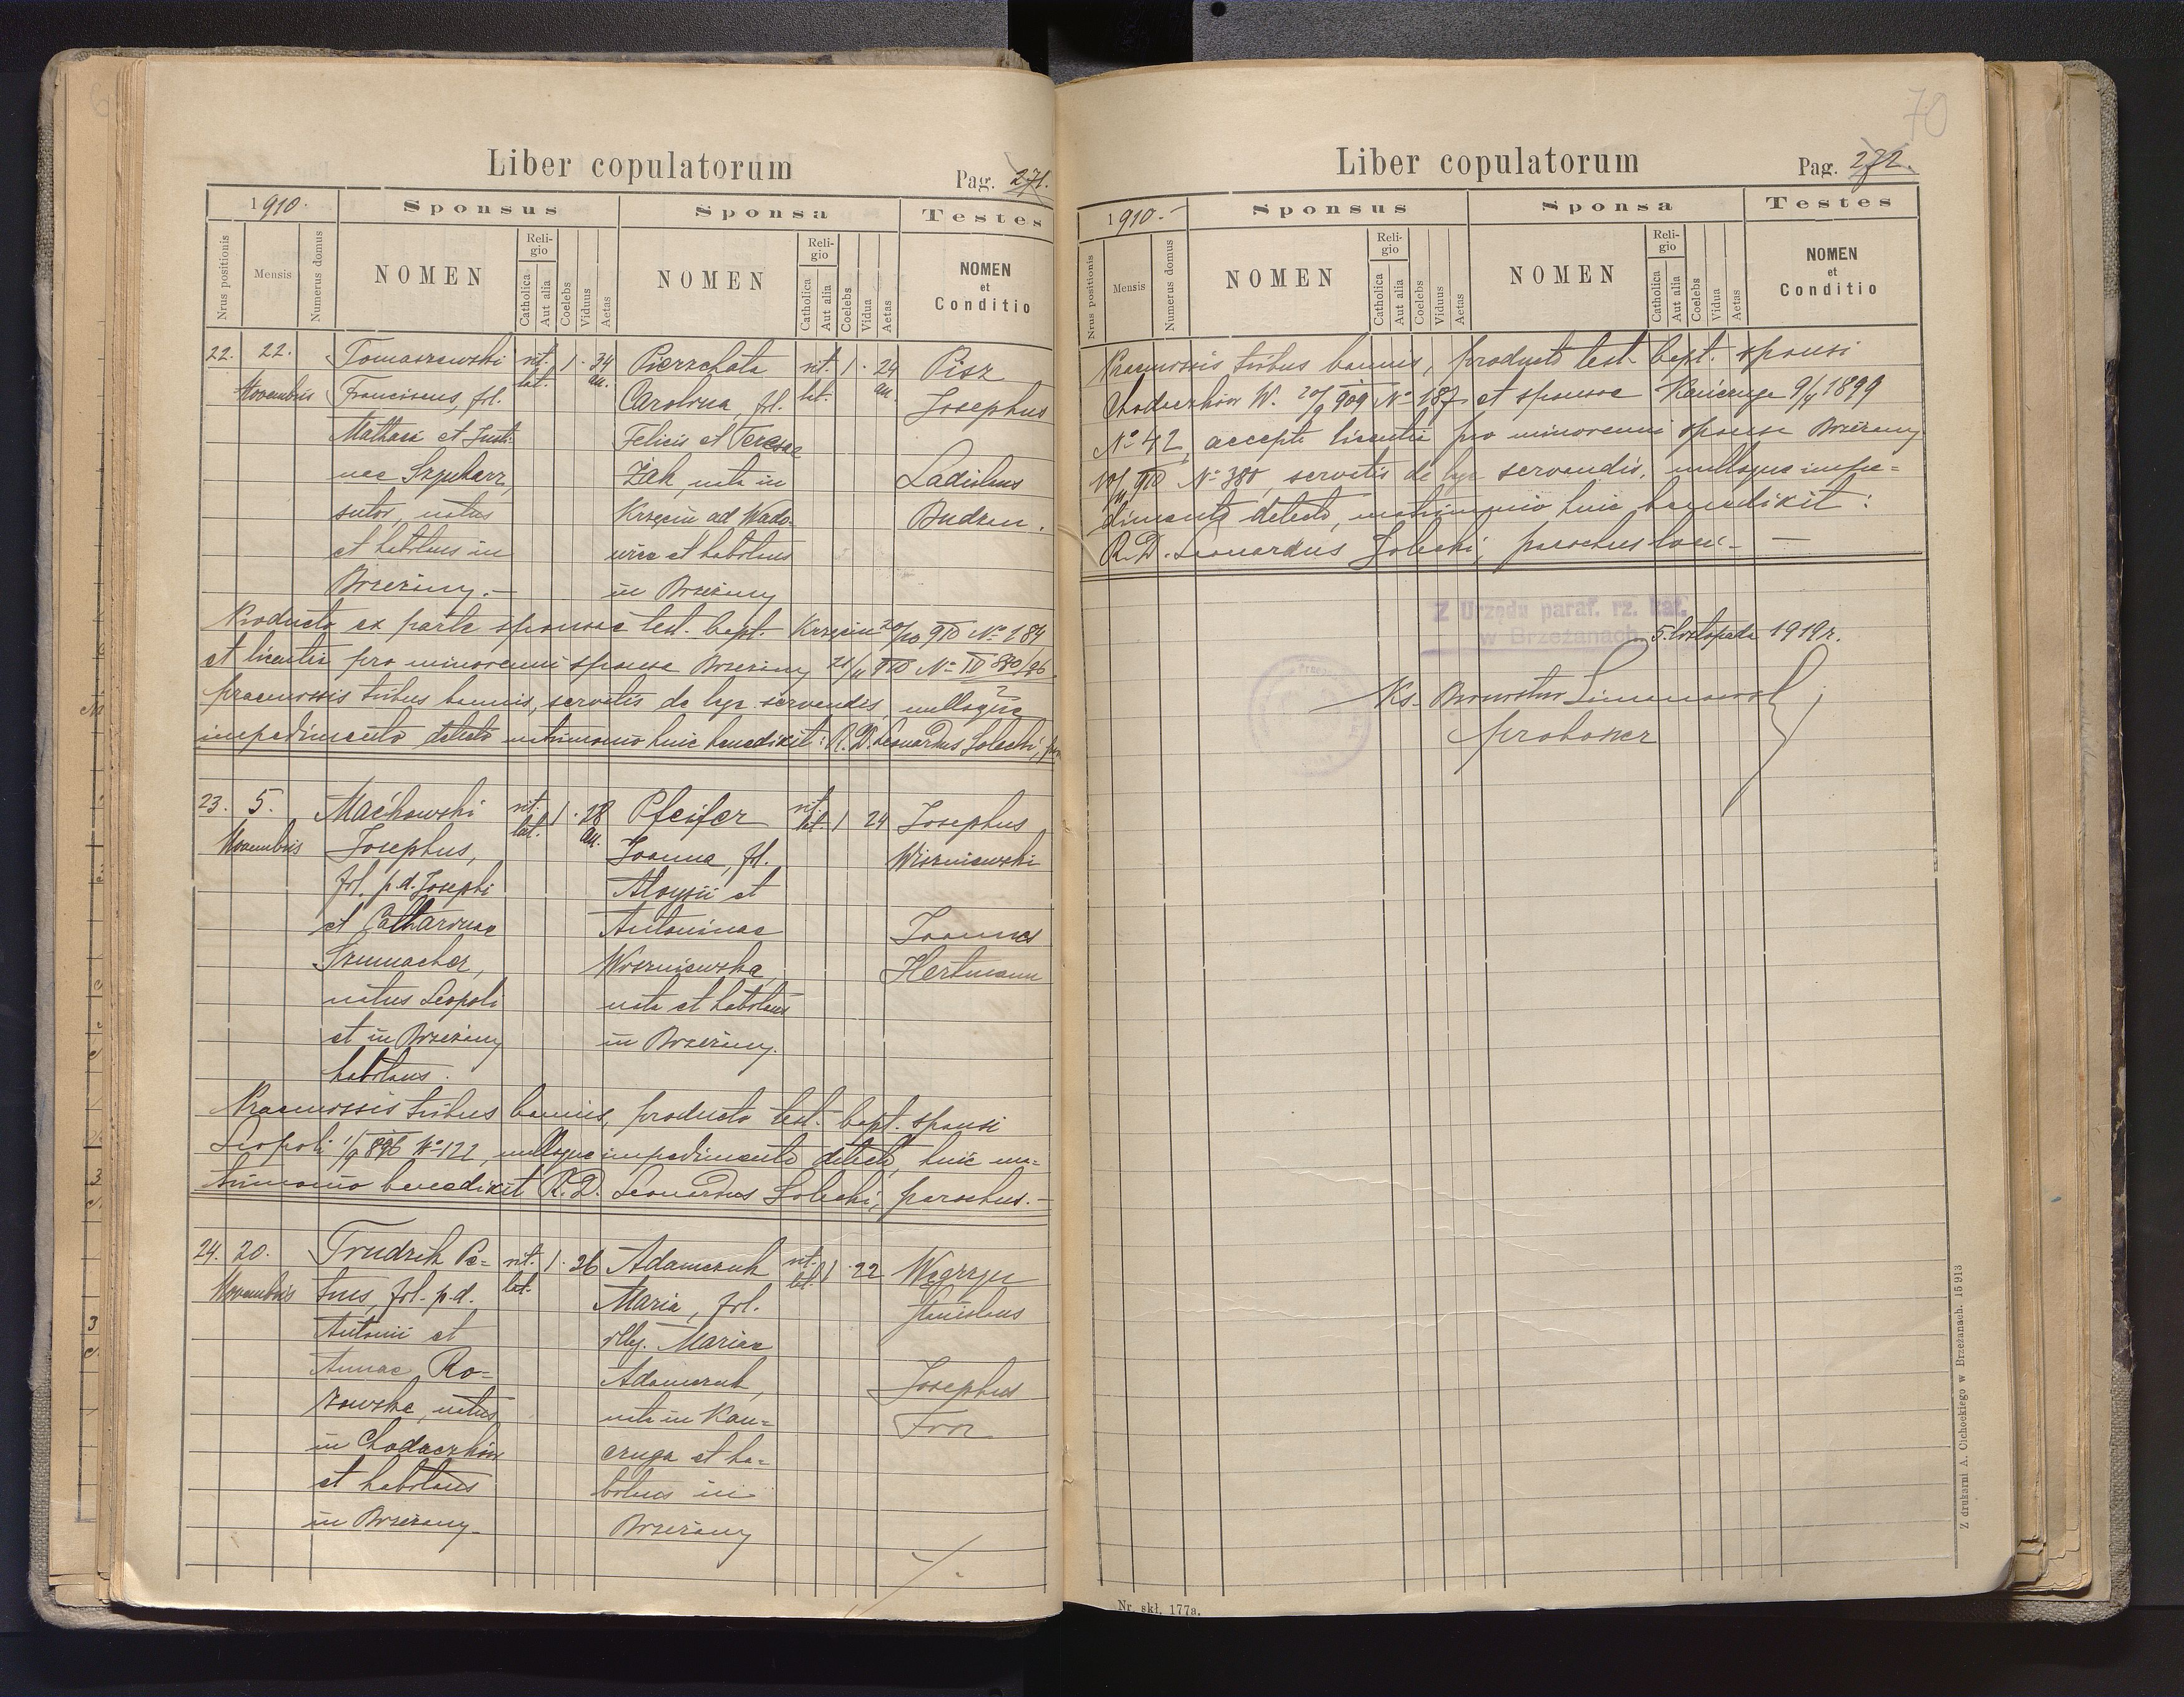 Liber copulatorum
Pag. 271.
1910.
Sponsus
Sponsa
Testes
Nrus positionis
Mensis
Numerus domus
NOMEN
Religio
Catholica
Aut alia
Coelebs
Viduus
Aetas
NOMEN
Religio
Catholica
Aut alia
Coelebs
Vidua
Aetas
NOMEN
et
Conditio
22. 22. Tomaszewski rit. 1. 34 Pierzchała rit. 1. 24 Pisz
Novembris Franciscus, fil. lat. an. Carolina, fil. lat. an. Josephus
Mathaei et Justi- Felicis et Teresae
nae Szpuharz, Żak, nata in Ladislaus
sutor, natus Krzęcin ad Wado- Budzan.
et habitans in wice et habitans
Brzeżany.- in Brzeżany
Producto ex parte sponsae test. bapt. Krzęcin 20/10 910 No 184
et licentia pro minorenni sponsa Brzeżany 21/11 910 No IV 880/96
praemissis tribus bannis, servatis de lege servandis, nulloque
impedimento detecto matrimonio huic benedixit: R.D. Leonardus Solecki,
23. 5. Maćkowski rit. 1. 28 Pfeifer rit. 1 24 Josephus
Novembris Josephus, lat. an. Joanna, fil. lat. Wiszniewski
fil. p.d. Josephi Aloysii et
et Catharinae Antoninae Joannes
Szumacher, Wiszniewska, Hertmann
natus Leopoli nata et habitans
et in Brzeżany in Brzeżany.
habitans.
Praemissis tribus bannis, producto test. bapt. sponsi
Leopoli No 122, nulloque impedimento detecto, huic ma-
trimonio benedixit R.D. Leonardus Solecki, parochus.-
24. 20. Trudzik Pe- rit. 1. 26 Adamczuk rit. 1. 22 Węgrzyn
Novembris trus, fil. p.d. lat. Maria, fil. lat. Stanislaus
Antonii et illeg. Mariae
Annae Ro- Adamczuk, Josephus
zowska, natus nata in Kań-
in Chodaczków czuga et ha-
et habitans bitans in
in Brzeżany.- Brzeżany
Liber copulatorum
70
Pag. 272.
1910.-
Sponsus
Sponsa
Testes
Nrus positionis
Mensis
Numerus domus
NOMEN
Religio
Catholica
Aut alia
Coelebs
Viduus
Aetas
NOMEN
Religio
Catholica
Aut alia
Coelebs
Vidua
Aetas
NOMEN
et
Conditio
Praemissis tribus bannis, producto test. bapt. sponsi
Chodaczków W. 20/9 909 No 187 et sponsae Kańczuga 9/4 1899
No 42, accepta licentia pro minorenni sponsa Brzeżany
10/11 910 No 380, servatis de lege servandis, nulloque impe-
dimento detecto, matrimonio huic benedixit:
R.D. Leonardus Solecki, parochus loci.-
Z Urzędu paraf. rz. kat.
w Brzeżanach 5. listopada 1919 r.
Ks.
proboszcz
Z drukarni A. Cichockiego w Brzeżanach. 15913
Nr. skł. 177a.